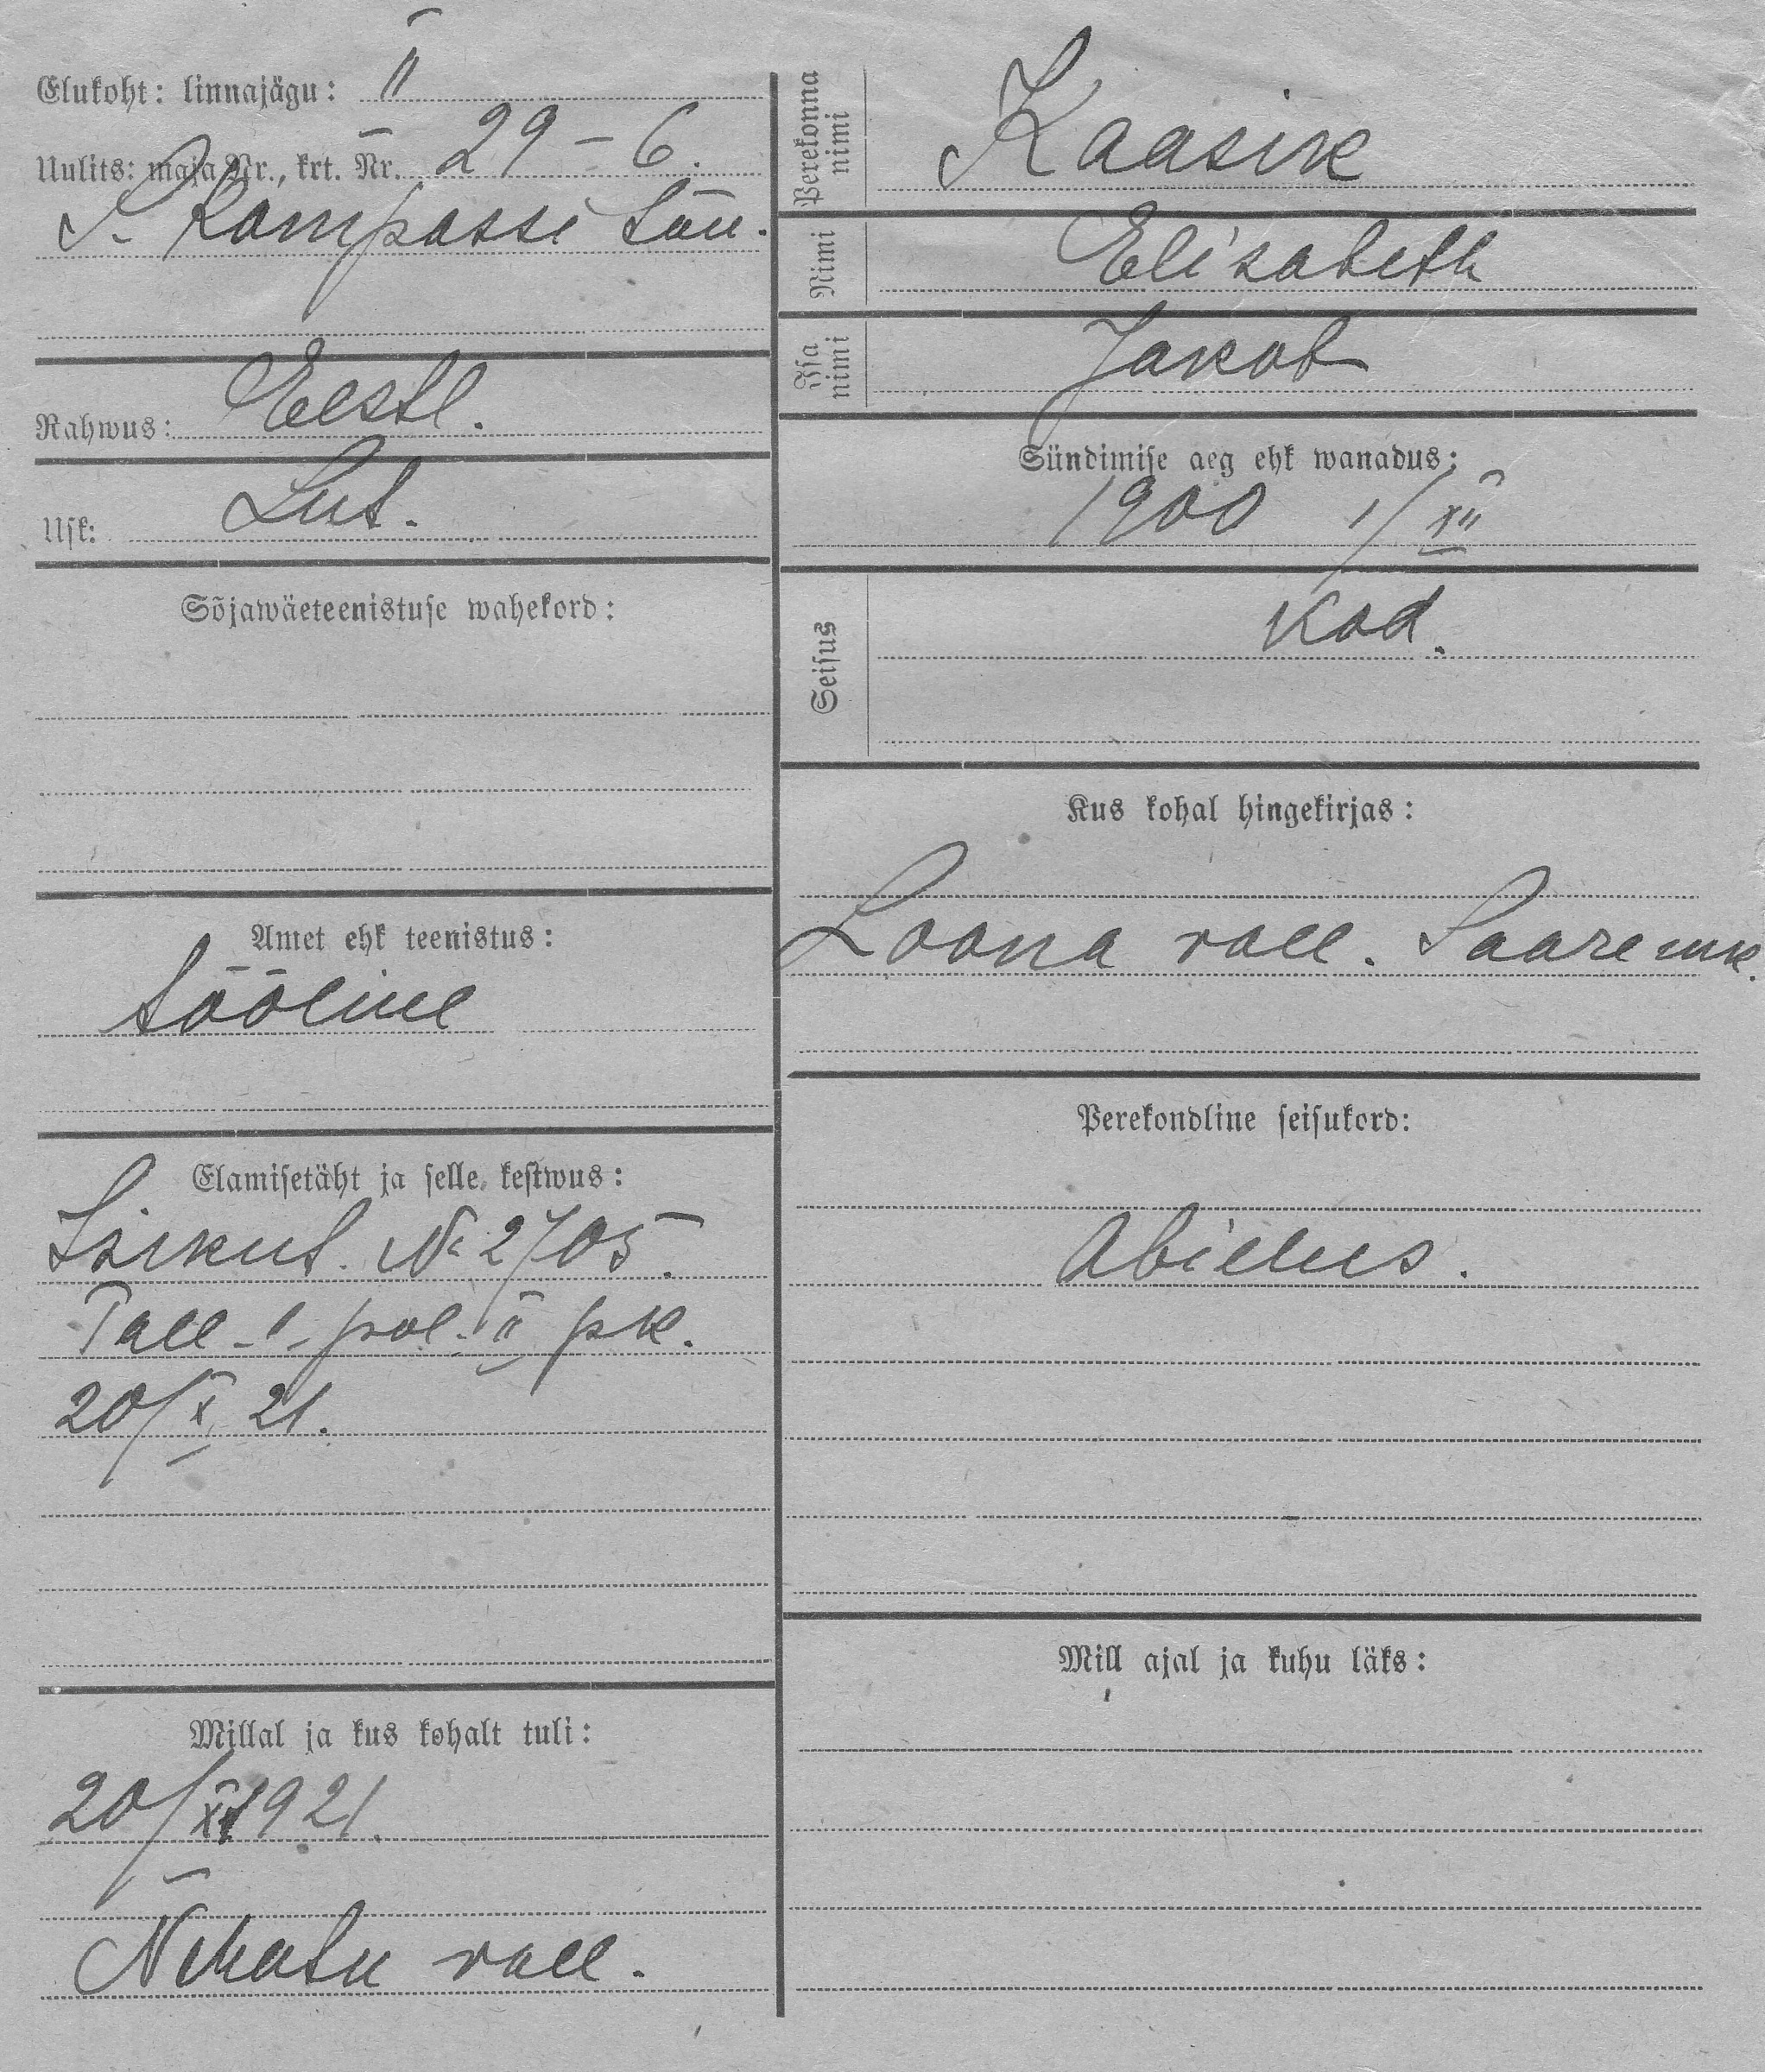 Elukoht: linnajägu: II
Uulits: maja Nr., krt. Nr. 29 – 6.
S. Kompassi tän.
Rahwus: Eestl.
Usk: Lut.
Sõjawäeteenistuse wahekord:
Amet ehk teenistus:
tööline
Elamisetäht ja selle kestwus:
Isikut. № 2705.
Tall. I pol. II pk.
20/X 21.
Millal ja kus kohalt tuli:
20/XI 1921.
Nehatu vall.
Perekonna nimi Kaasik
Nimi Elisabeth
Isa nimi Jakob
Sündimise aeg ehk wanadus:
1900 1/XII
Seisus Kod.
Kus kohal hingekirjas:
Loona vall. Saaremk.
Perekondline seisukord:
Abielus.
Mill ajal ja kuhu läks: